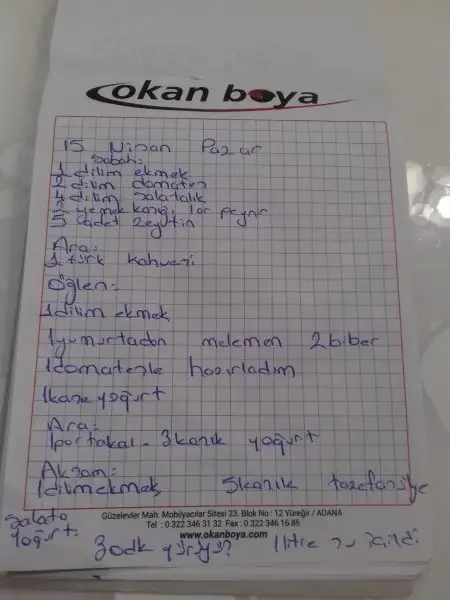 okan boya
15 Nisan Pazar
Sabah:
1 dilim ekmek
2 dilim domates
4 dilim salatalık
5 yemek kaşığı lor peynir
5 adet zeytin
Ara:
1 türk kahvesi
öğlen:
1 dilim ekmek
1 yumurtadan melemen 2 biber
1 domatesle hazırladım
1 kase yoğurt
Ara:
1 portakal - 3 kaşık yoğurt
Akşam:
1 dilim ekmek 5 kaşık taze fasulye
salata
yoğurt
Güzelevler Mah. Mobilyacılar Sitesi 23. Blok No : 12 Yüreğir / ADANA
Tel : 0 322 346 31 32 Fax : 0 322 346 16 85
www.okanboya.com
30 dk yürüyüş 1 litre su içildi